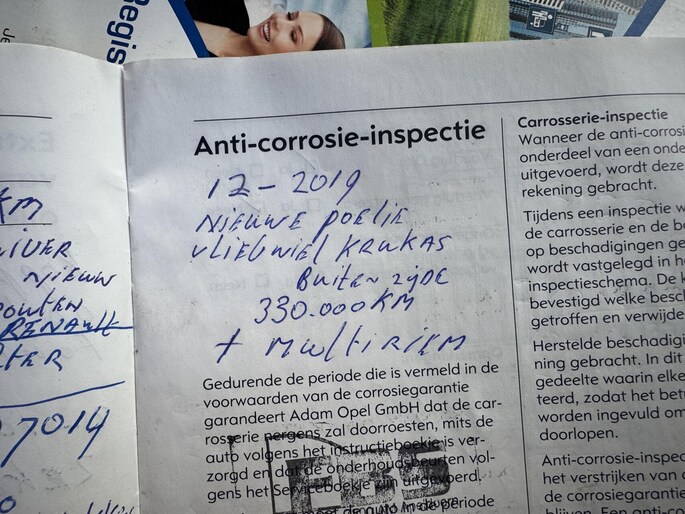 Regis
Je
KM
NIEUW
RENAULT
7014
Anti-corrosie-inspectie
12-2019
NIEUWE POELIE
VLIEGWIEL KRUKAS
BUITEN ZIJDE
330.000 KM
+ MULTIRIEM
Gedurende de periode die is vermeld in de
voorwaarden van de corrosiegarantie
garandeert Adam Opel GmbH dat de car-
rosserie nergens zal doorroesten, mits de
auto volgens het instructieboekje is ver-
zorgd en dat de onderhoudsbeurten vol-
gens het Serviceboekje zijn uitgevoerd.
de auto in de periode
Carrosserie-inspectie
Wanneer de anti-corrosi
onderdeel van een onde
uitgevoerd, wordt deze
rekening gebracht.
Tijdens een inspectie w
de carrosserie en de be
op beschadigingen ge
wordt vastgelegd in h
inspectieschema. De k
bevestigd welke besch
getroffen en verwijde
Herstelde beschadigi
ning gebracht. In dit
gedeelte waarin elke
teerd, zodat het betr
worden ingevuld om
doorlopen.
Anti-corrosie-inspec
het verstrijken van
de corrosiegarantie
blijven. Een anti-co